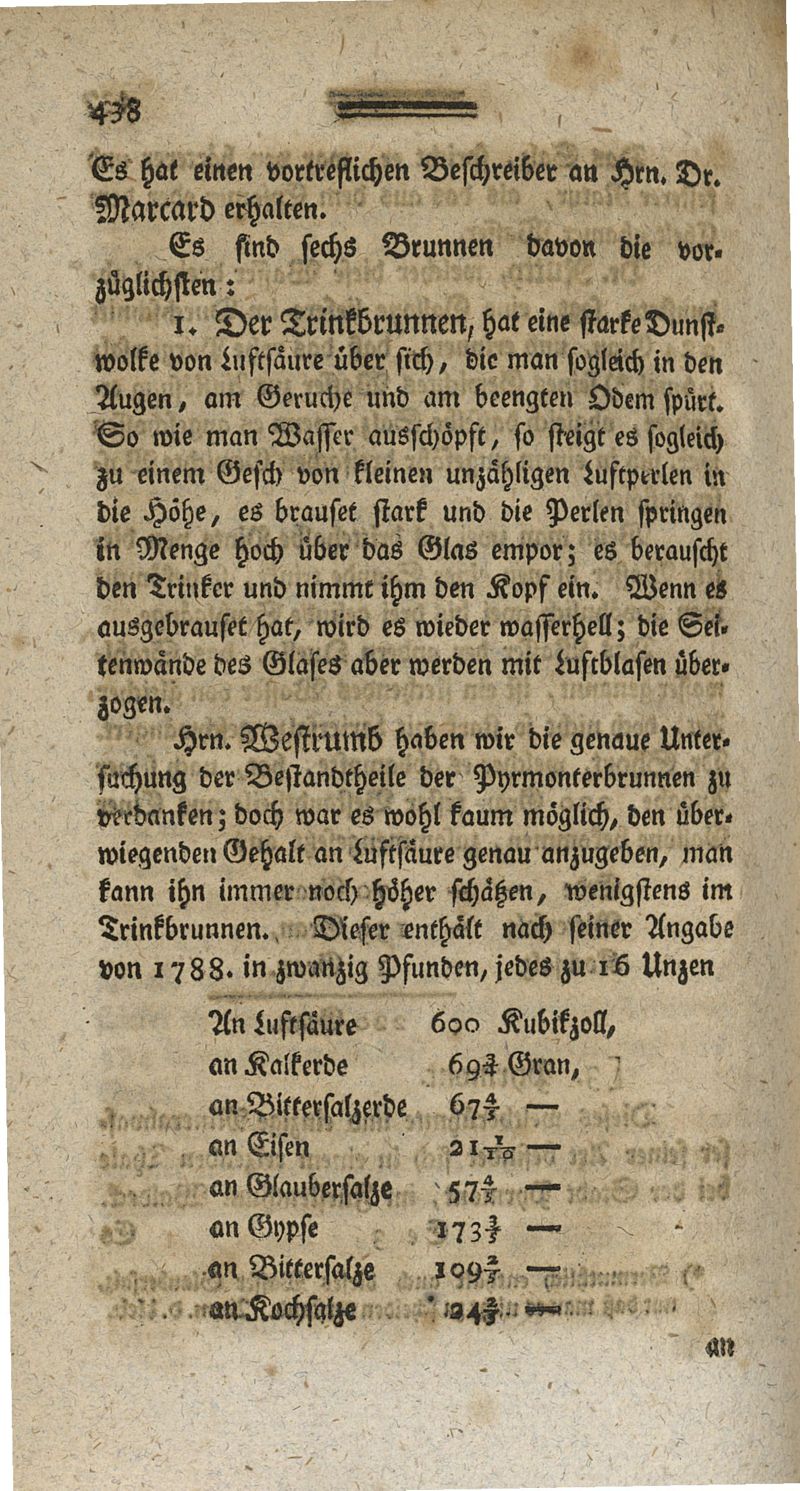 438
Es hat einen vortreflichen Beschreiber an Hrn. Dr.
Marcard erhalten.
Es sind sechs Brunnen davon die vor-
züglichsten:
1. Der Trinkbrunnen, hat eine starke Dunst-
wolke von Luftsäure über sich, die man sogleich in den
Augen, am Geruche und am beengten Odem spürt.
So wie man Wasser ausschöpft, so steigt es sogleich
zu einem Gesch von kleinen unzähligen Luftperlen in
die Höhe, es brauset stark und die Perlen springen
in Menge hoch über das Glas empor; es berauscht
den Trinker und nimmt ihm den Kopf ein. Wenn es
ausgebrauset hat, wird es wieder wasserhell; die Sei-
tenwände des Glases aber werden mit Luftblasen über-
zogen.
Hrn. Westrumb haben wir die genaue Unter-
suchung der Bestandtheile der Pyrmonterbrunnen zu
verdanken; doch war es wohl kaum möglich, den über-
wiegenden Gehalt an Luftsäure genau anzugeben, man
kann ihn immer noch höher schätzen, wenigstens im
Trinkbrunnen. Dieser enthält nach seiner Angabe
von 1788. in zwanzig Pfunden, jedes zu 16 Unzen
An Luftsäure 600 Kubikzoll,
an Kalkerde Gran,
an Bittersalzerde 67 4/5 —
an Eisen 21 1/10 —
an Glaubersalze 57 4/5 —
an Gypse —
an Bittersalze —
an Kochsalze —
an